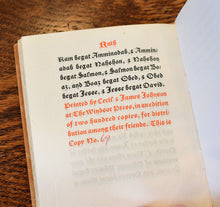 Ruth
Ram begat Amminadab, & Ammin-
adab begat Nahshon, & Nahshon
begat Salmon, & Salmon begat Bo-
az, and Boaz begat Obed, & Obed
begat Jesse, & Jesse begat David.
Printed by Cecil & James Johnson
at The Windsor Press, in an edition
of two hundred copies, for distri-
bution among their friends. This is
Copy No. 69